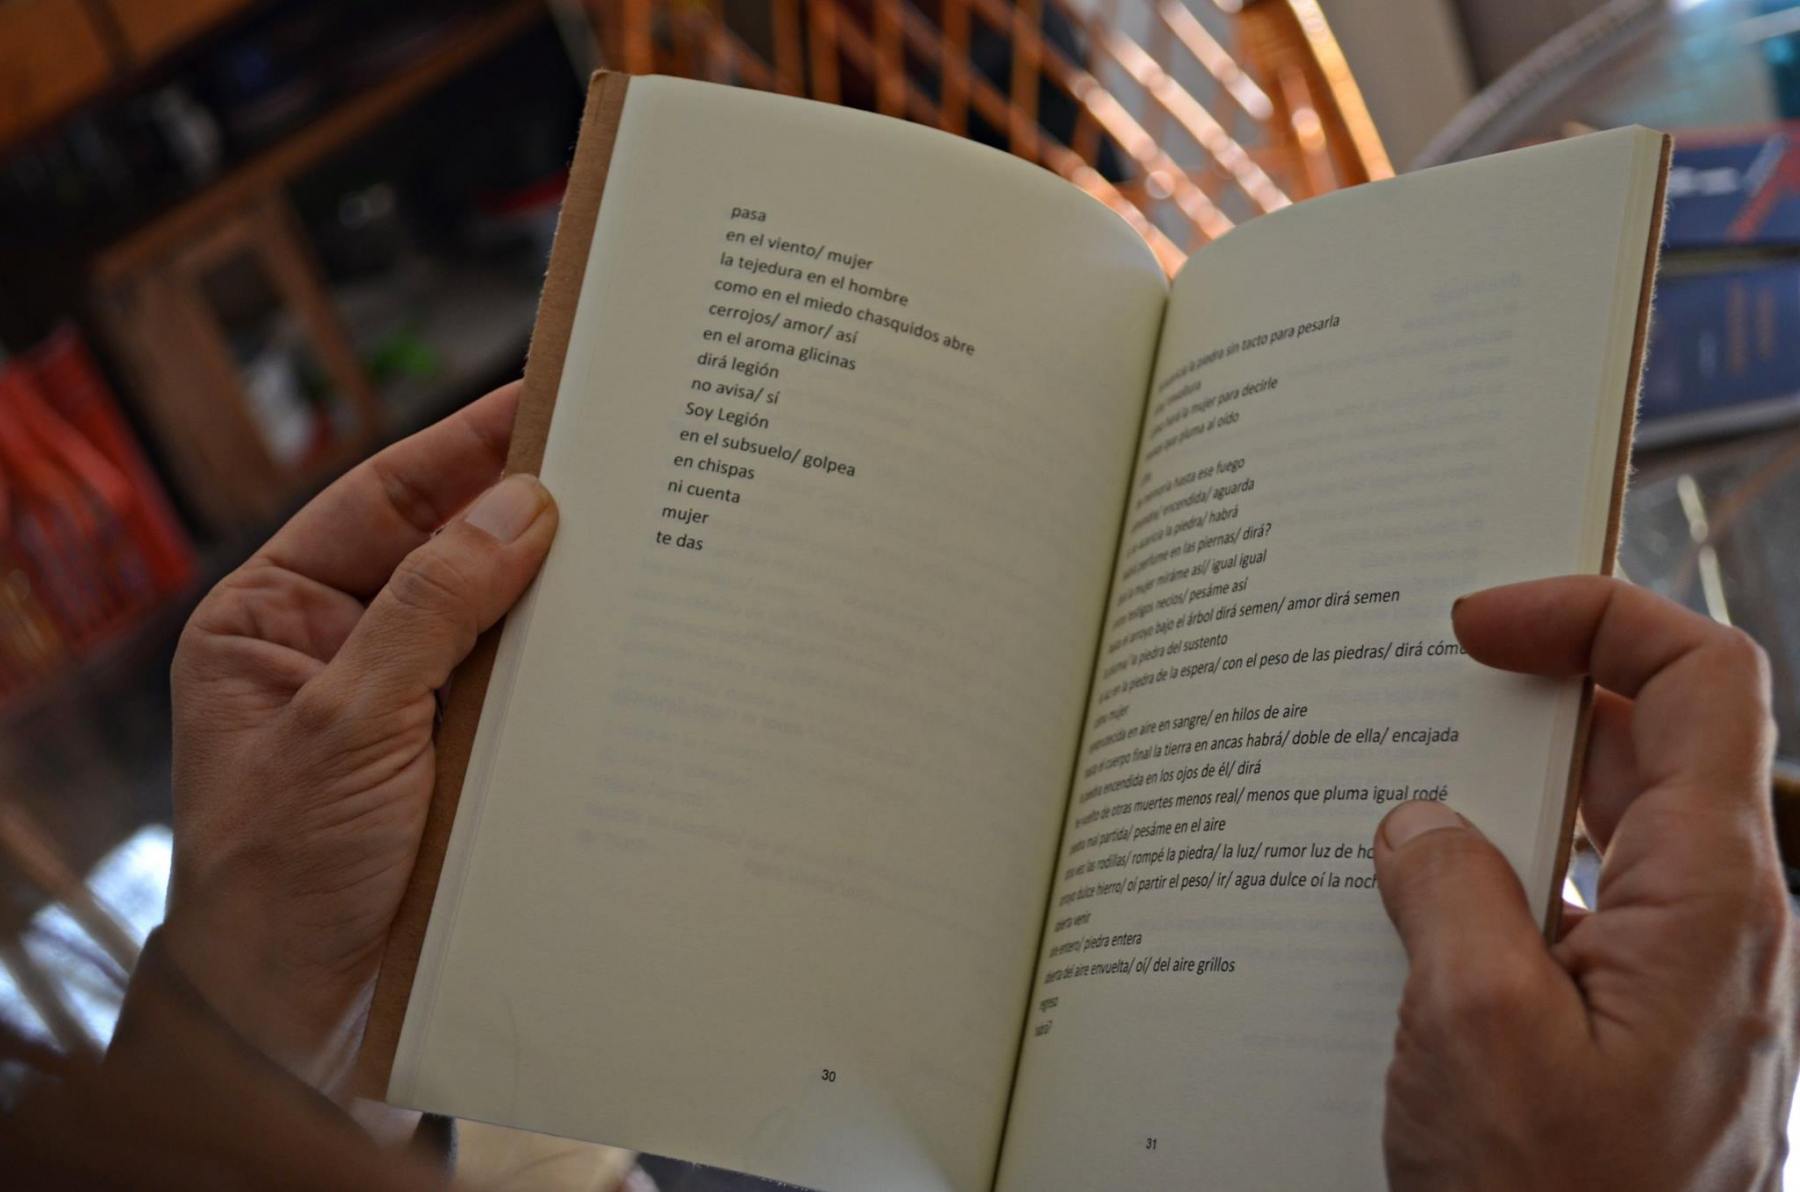 pasa
en el viento/ mujer
la tejedura en el hombre
como en el miedo chasquidos abre
cerrojos/ amor/ así
en el aroma glicinas
dirá legión
no avisa/ sí
Soy Legión
en el subsuelo/ golpea
en chispas
ni cuenta
mujer
te das
30
la piedra sin tacto para pesarla
la mujer para decirle
que pluma al oído
memoria hasta ese fuego
encendida/ aguarda
acaricia la piedra/ habrá
perfume en las piernas/ dirá?
la mujer miráme así/ igual igual
testigos necios/ pesáme así
el arroyo bajo el árbol dirá semen/ amor dirá semen
la piedra del sustento
en la piedra de la espera/ con el peso de las piedras/ dirá
mujer
en aire en sangre/ en hilos de aire
el cuerpo final la tierra en ancas habrá/ doble de ella/ encajada
piedra encendida en los ojos de él/ dirá
vuelto de otras muertes menos real/ menos que pluma igual rodé
mal partida/ pesáme en el aire
vez las rodillas/ rompé la piedra/ la luz/ rumor luz de
dulce hierro/ oí partir el peso/ ir/ agua dulce oí la
abierta venir
entero/ piedra entera
abierta del aire envuelta/ oí/ del aire grillos
regreso
31